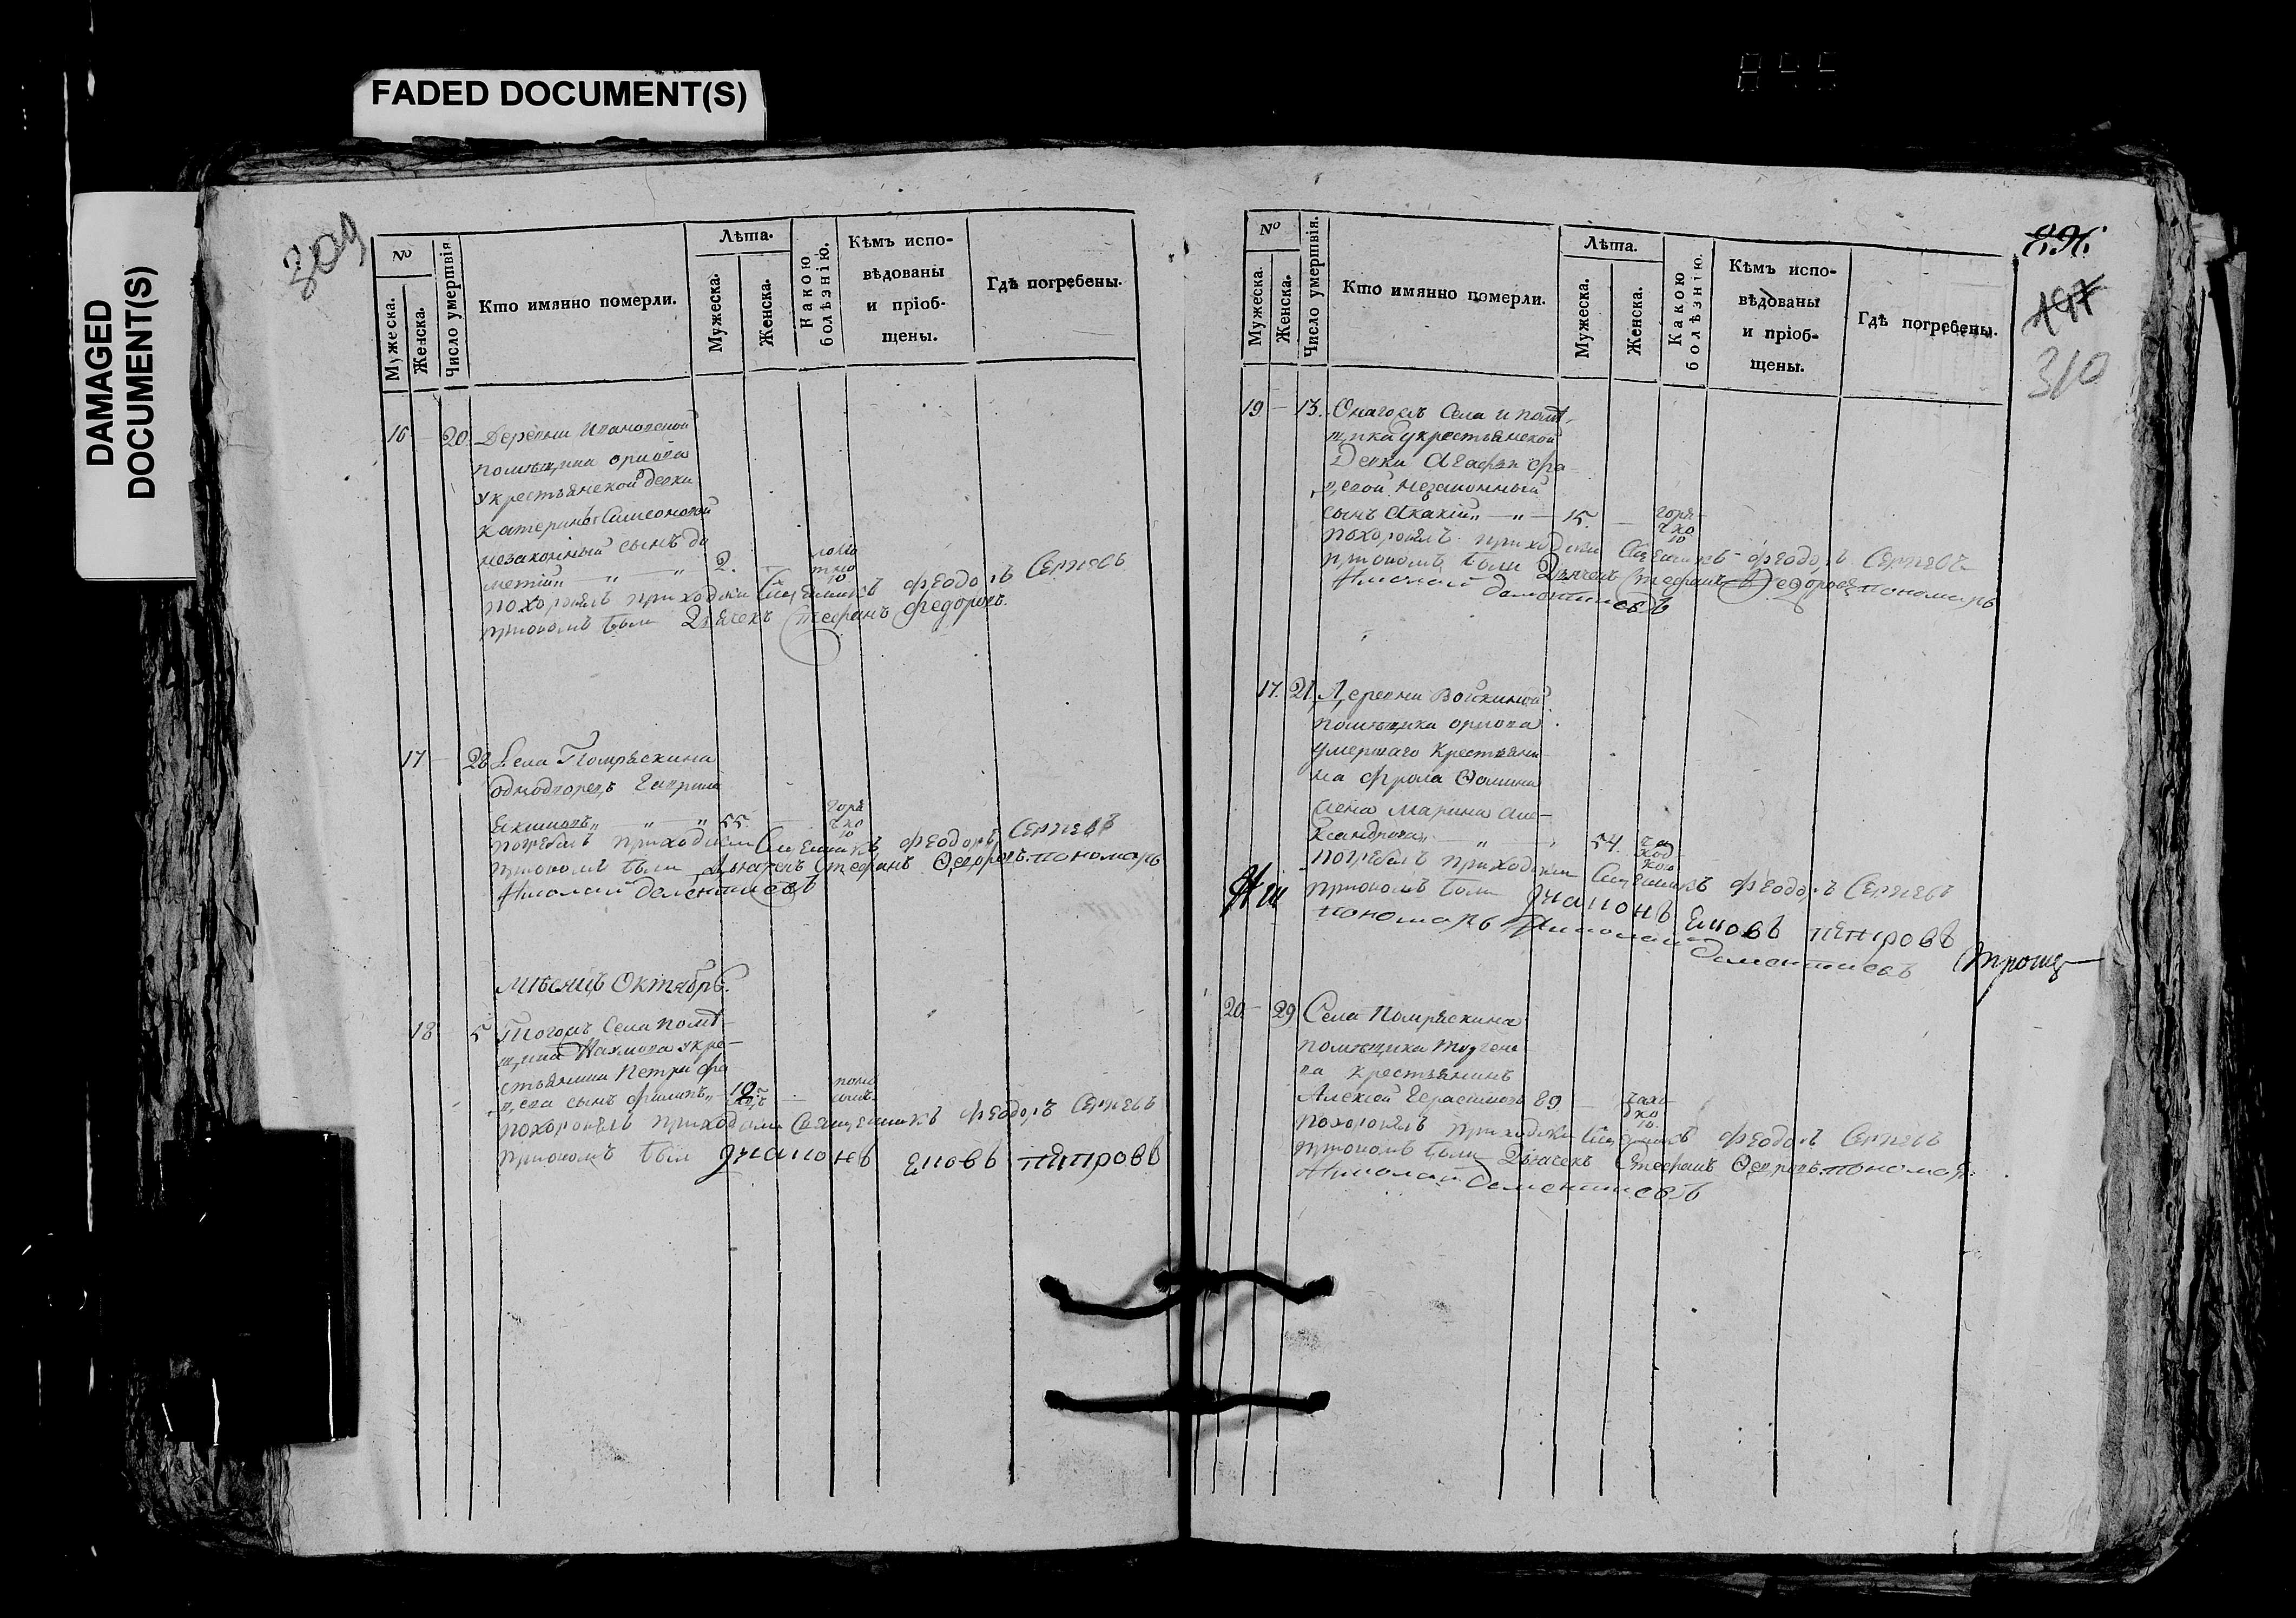 FADED DOCUMENT(S)
DAMAGED
DOCUMENT(S)
845
309
№
Мужеска.
Женска.
Число умертвія
Кто имянно померли.
Лѣта.
Мужеска.
Женска.
Какою
болѣзнію.
Кѣмъ испо-
вѣдованы
и пріоб-
щены.
Гдѣ погребены.
16 — 20 Деревни Ивановской
помѣщика орлова
укрестьянской девки
катерины Симеоновой
незаконный сынъ до
метій „ „ 2. —
похоронялъ приходски Священникъ феодоръ Сергѣевъ
притомъ были Дьячекъ Стефанъ Федоровъ.
17 — 28 Села Помряскина
однодворецъ Гаврила
Екимовъ „ „ „ 55. — горя
чкою
погребалъ приходски Священникъ феодоръ Сергѣевъ
притомъ были Дьячекъ Стефанъ Федоровъ пономарь
Николай дементиевъ
мѣсяцъ Октябрь.
18 — 5 Тогожъ Села помѣ-
щика Наумова укре-
стьянина Петра
сынъ филипъ „
похоронялъ приходски Священникъ феодоръ Сергѣевъ
притомъ был Диаконъ Еновъ петровъ
896
197
310
№
Мужеска.
Женска.
Число умертвія.
Кто имянно померли.
Лѣта.
Мужеска.
Женска.
Какою
болѣзнію.
Кѣмъ испо-
вѣдованы
и пріоб-
щены.
Гдѣ погребены.
19 — 13. Онагожъ Села и помѣ-
щика укрестьянской
Девки Агафьи
незаконный
сынъ Акакій „ — „ — 15. — горя-
чко
ю
похоронялъ приходски Священникъ феодоръ Сергѣевъ
притомъ были Дьячекъ Стефанъ Федоровъ пономарь
Николай дементиевъ
17. 21. Деревни Войкиной
помѣщика орлова
умершаго Крестьяни
на фрола Фомина
жена марина Але-
ксандрова „ „ 54. ча
хот
кою
погребалъ приходски Священникъ феодоръ Сергѣевъ
притомъ были Диаконъ Еновъ петровъ
пономарь Николай дементиевъ
20. — 29 Села Помряскина
помѣщика тургене
ва крестьянинъ
Алексѣй Герасимовъ 89 —
похоронялъ приходски Священникъ феодоръ Сергѣевъ
притомъ были Дьячекъ Стефанъ Федоровъ пономарь
Николай дементиевъ